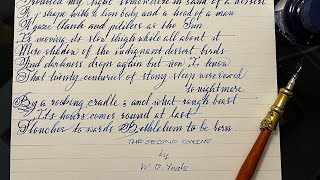 Troubled my sight somewhere in sand of a dessert
A shape with lion body and a head of a man
A gaze blank and pitiless as the Sun
Is moving its slow thigh while all about it
Were shadow of the indignant dessert birds
And darkness drops again but now I know
That twenty centuries of stony sleep were vexed
to nightmare
By a rocking cradle; and what rough beast
Its hours comes round at last
Slouches to wards Bethlehem to be born
THE SECOND COMING
by
W B Yeats